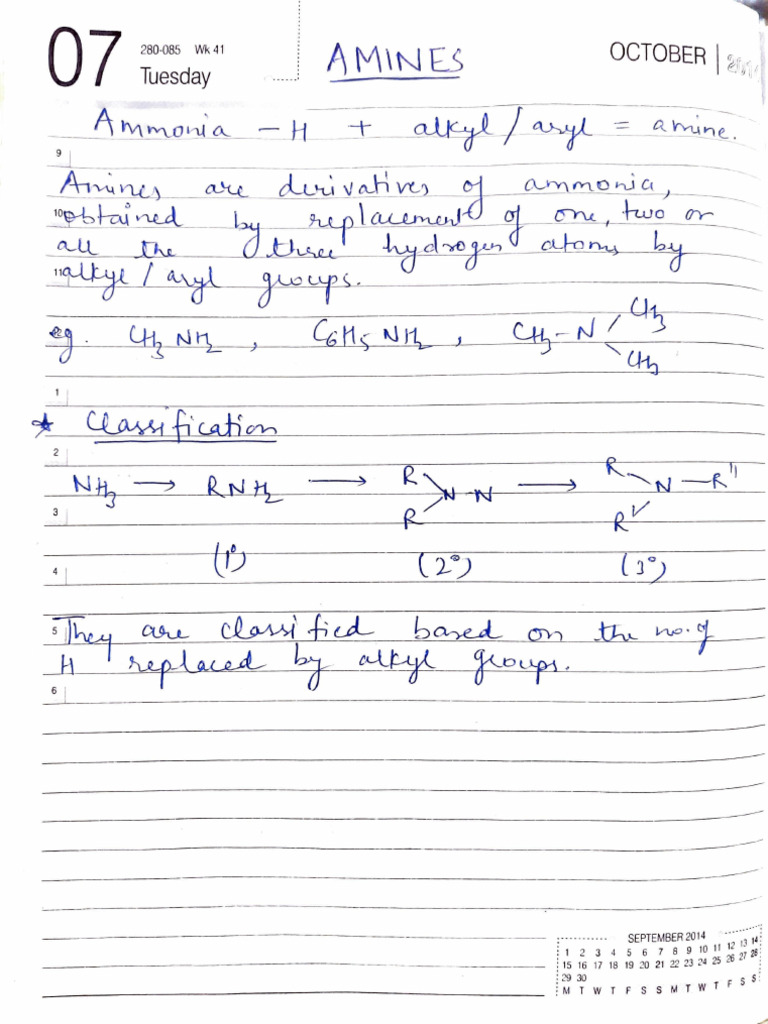 07 280-085 Wk 41 Tuesday AMINES OCTOBER | 2014
Ammonia – H + alkyl / aryl = amine.
9
Amines are derivatives of ammonia,
10 obtained by replacement of one, two or
all the three hydrogen atoms by
11 alkyl / aryl groups.
eg. CH3 NH2 , C6H5 NH2 , CH3 – N / CH3 \ CH3
1
* Classification
2
NH3 → RNH2 → R \ R / N – N → R \ R' / N – R"
3
4 (1°) (2°) (3°)
5 They are classified based on the no. of
H replaced by alkyl groups.
6
SEPTEMBER 2014
1 2 3 4 5 6 7 8 9 10 11 12 13 14
15 16 17 18 19 20 21 22 23 24 25 26 27 28
29 30
M T W T F S S M T W T F S S